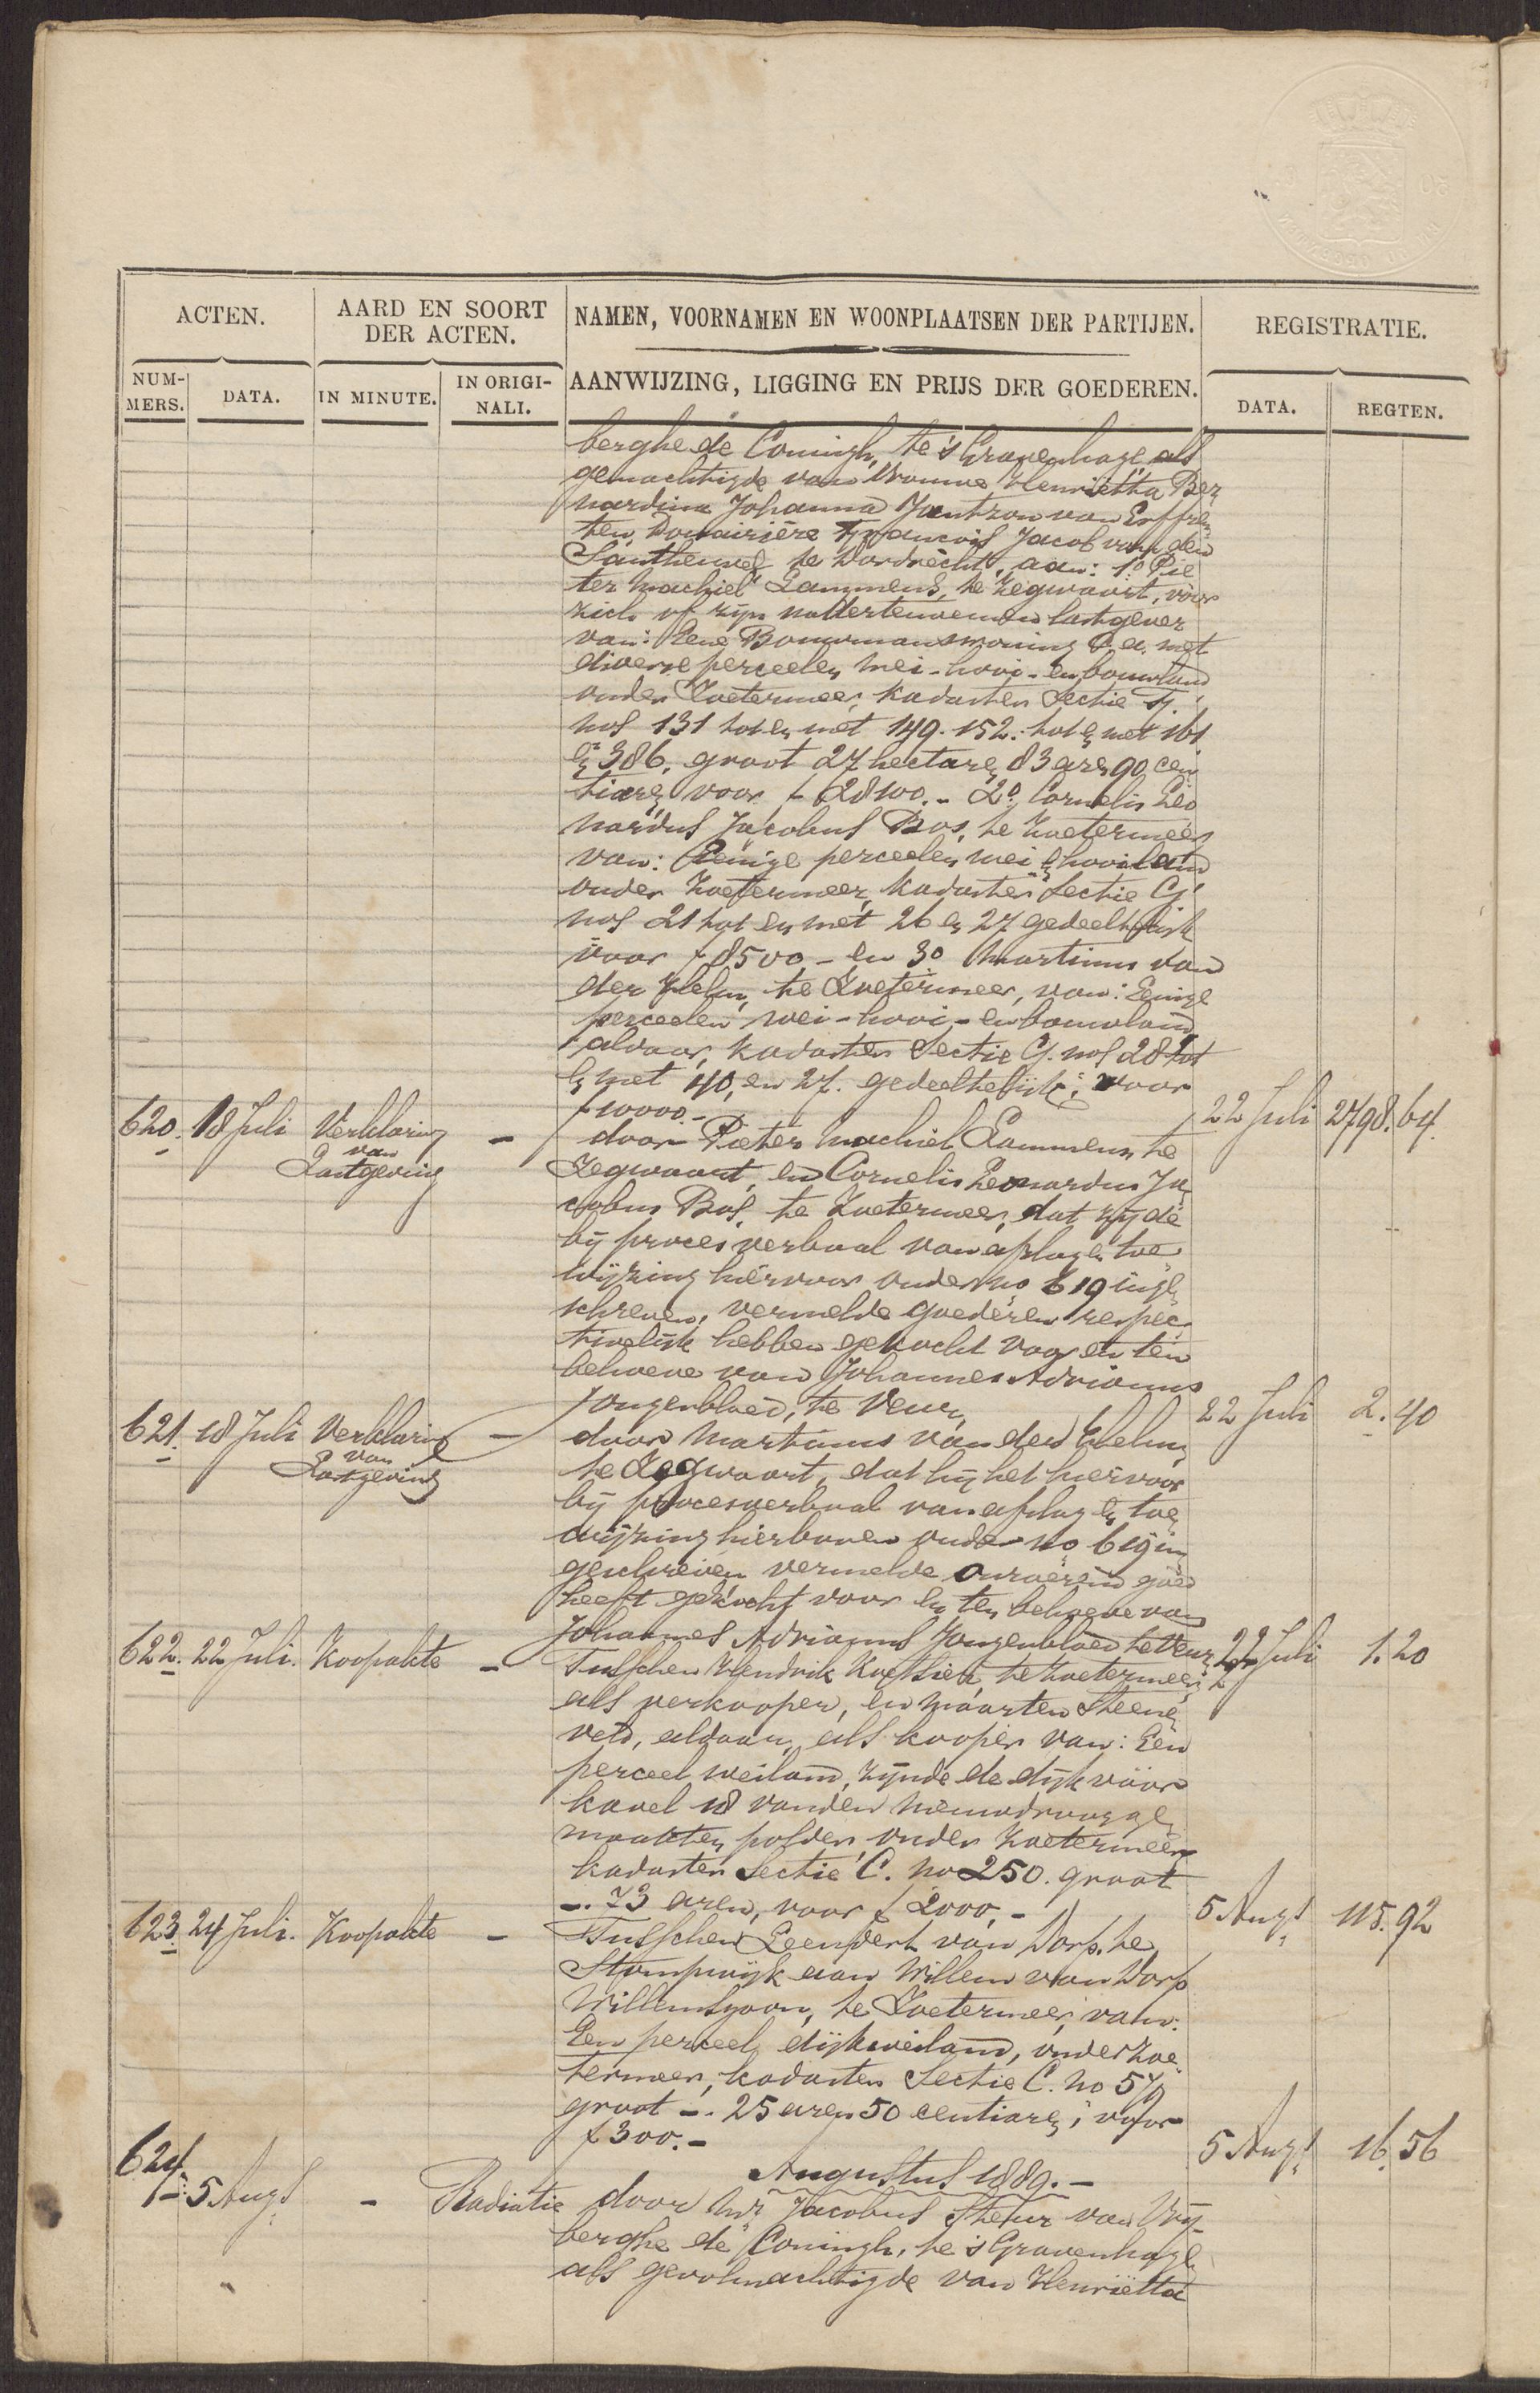 ACTEN.
AARD EN SOORT
DER ACTEN.
NAMEN, VOORNAMEN EN WOONPLAATSEN DER PARTIJEN.
REGISTRATIE.
NUM-
MERS.
DATA.
IN MINUTE.
IN ORIGI-
NALI.
AANWIJZING, LIGGING EN PRIJS DER GOEDEREN.
DATA.
REGTEN.
berghe de Coningh, te 's Gravenhage, als
gemachtigde van Vrouwe Henriëtta Ber
nardina Johanna Jantzon van Erffren
ten, Douairière François Jacob van den
Santheuvel te Dordrecht, aan: 1o Pie
ter Machiel Lammens, te Zegwaart, voor
zich of zijn nadertenoemen lastgever
van: Eene Bouwmanswoning c.a. met
diverse perceelen wei-hooi- en bouwland
onder Zoetermeer, kadaster Sectie
nos 131 tot en met 149. 152. tot en met 161
en 386, groot 27 hectaren 83 aren 90 cen
tiaren voor f 28100.- 2o Cornelis Leo
nardus Jacobus Bos, te Zoetermeer
van: Eenige perceelen wei en hooiland
onder Zoetermeer, kadaster Sectie G
nos 21 tot en met 26 en 27 gedeeltelijk
voor f 8500.- en 3o Martinus van
der Helm, te Zoetermeer, van: Eenige
perceelen wei-hooi- en bouwland
aldaar, kadaster Sectie G. nos 28 tot
en met 40, en 27. gedeeltelijk; voor
f 10000.- 22 Juli 2798.64.
620. 18 Juli Verklaring van Lastgeving - door Pieter Machiel Lammens te
Zegwaart, en Cornelis Leonardus Ja
cobus Bos, te Zoetermeer, dat zij de
bij proces verbaal van afslag en toe
wijzing hiervoor onder no 619 inge
schreven, vermelde goederen respec
tivelijk hebben gekocht voor en ten
behoeve van Johannes Adrianus
Jongenbloed, te Veur. 22 Juli 2.40
621. 18 Juli Verklaring van Lastgeving - door Martinus van der Helm
te Zegwaart, dat hij het hiervoor
bij procesverbaal van afslag en toe
wijzing hierboven onder no 619 in
geschreven vermelde onroerend goed
heeft gekocht voor en ten behoeve van
Johannes Adrianus Jongenbloed te Veur 22 Juli 1.20
622. 22 Juli. Koopakte - Tusschen Hendrik te Zoetermeer
als verkooper, en Maarten Steene
veld, aldaar, als kooper van: Een
perceel weiland, zijnde de dijk voor
kavel 18 van den nieuwdroogge
maakten polder, onder Zoetermeer
kadaster Sectie C. no 250. groot
-. 73 aren, voor f 2000.- 5 Augs 115.92
623. 24 Juli. Koopakte - Tusschen Leendert van Dorp, te
Stompwijk aan Willem van Dorp
Willemszoon, te Zoetermeer, van:
Een perceel dijkweiland, onder Zoe
termeer, kadaster Sectie C. no 579
groot -. 25 aren 50 centiaren; voor
f 300.- 5 Augs 16.56
Augustus 1889.-
624 5 Augs - Radiatie door Mr Jacobus Steur van Vrij
berghe de Coningh, te 's Gravenhage
als gevolmachtigde van Henriëtta